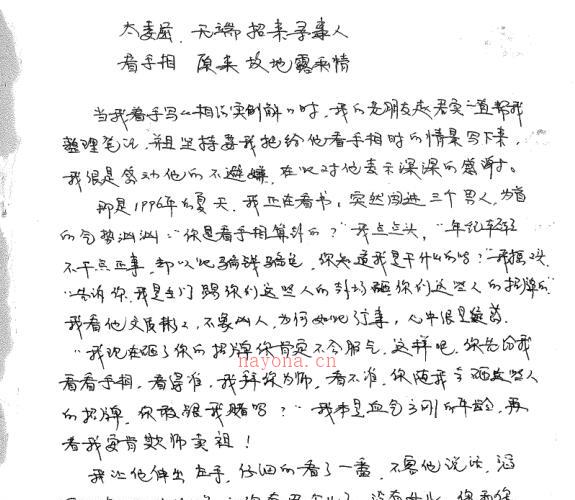 太委屈 无端招来寻事人
看手相 原来故地露真情
当我着手写《相法实例解》时，我的老朋友君实一直帮我
整理笔记，并且坚持要我把给他看手相时的情景写下来，
我很是感动他的不避嫌，在此对他表示深深的感谢。
那是1996年的夏天，我正在看书，突然闯进三个男人，为首
的气势汹汹："你是看手相算卦的？"我点点头，"年纪轻轻
不干点正事，却以此骗钱骗色，你知道我是干什么的吗？"我摇头
"告诉你，我是专门踢你们这些人的卦场砸你们这些人的招牌的"
我看他文质彬彬，不象凶人，为何如此行事，心中很是
"我现在砸了你的招牌你肯定不会服气，这样吧，你先给我
看看手相，看得准，我拜你为师，看不准，你随我去砸这些人
的招牌，你敢跟我赌吗？"我本是血气方刚的年龄，再
看我安肯欺师卖祖！
nayona.cn
我让他伸出左手，仔细的看了一番，不要他说法，